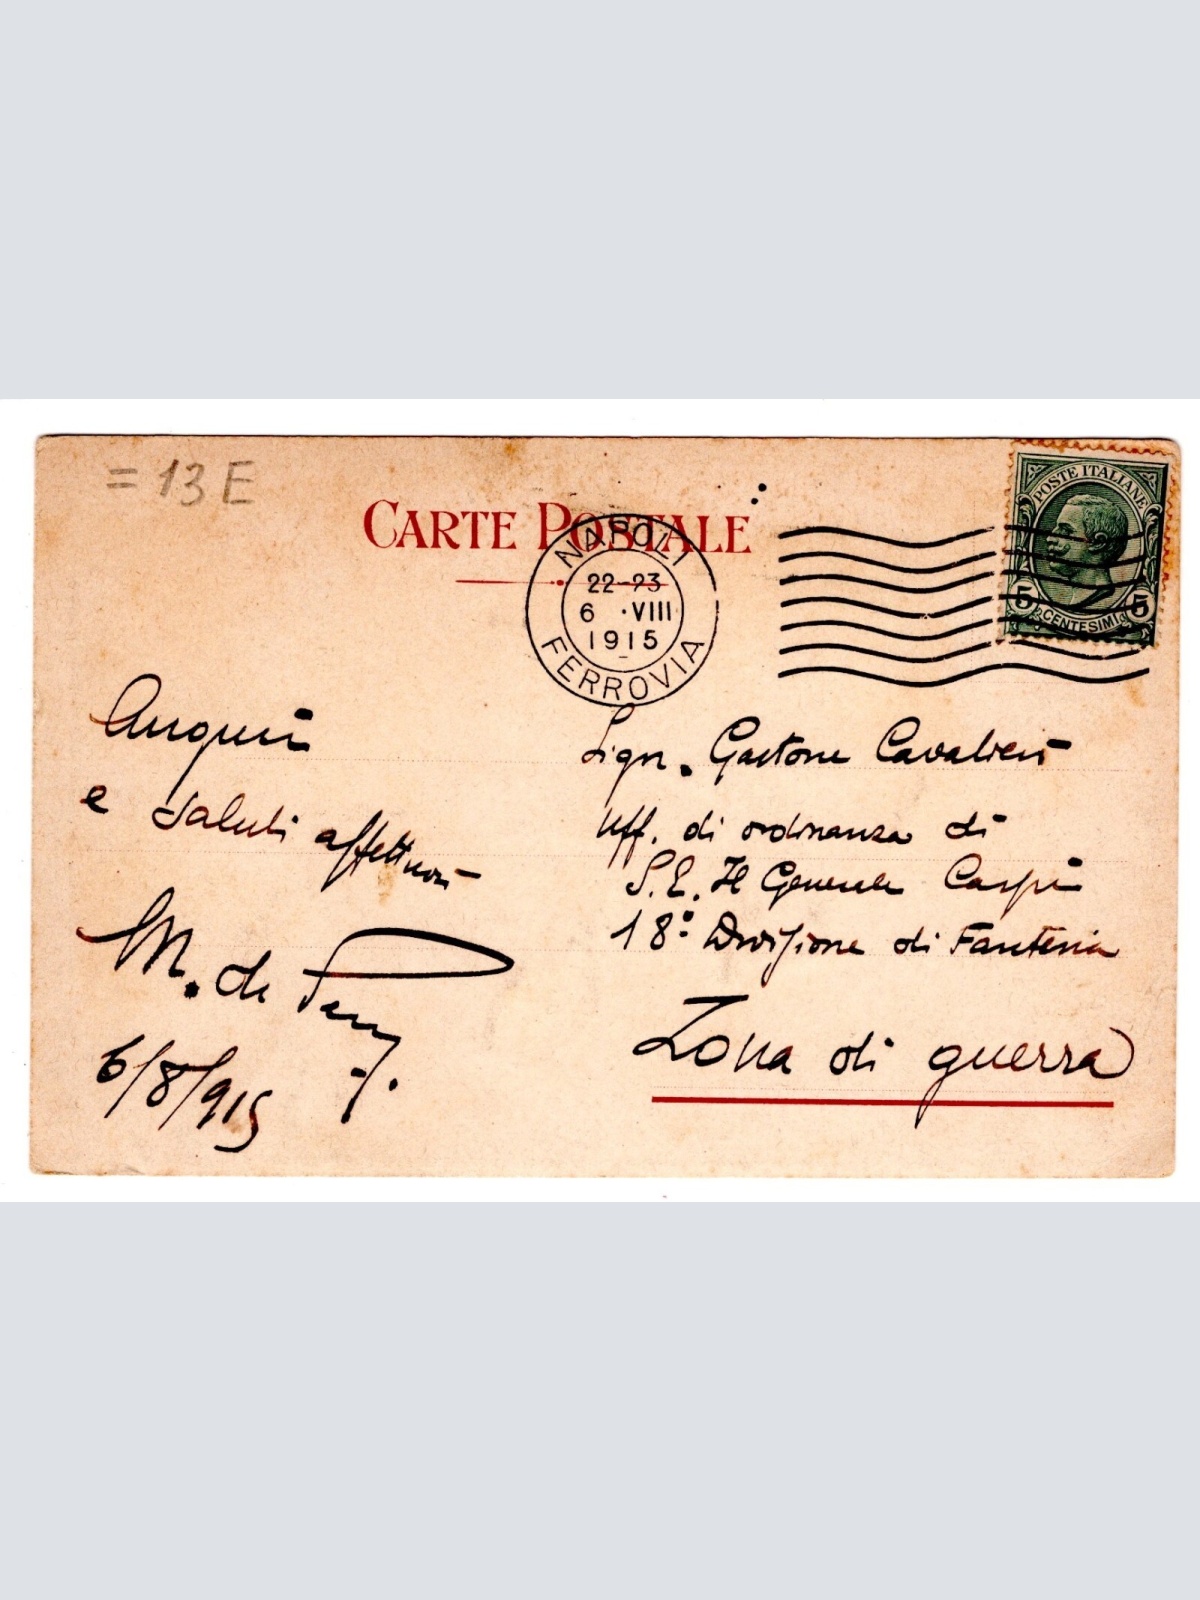 = 13 E
CARTE POSTALE
POSTE ITALIANE
5 CENTESIMI 5
NAPOLI
22-23
6 · VIII
1915
FERROVIA
Auguri
e saluti affettuosi
M. de
6/8/915
Sigr. Gastone Cavalieri
Uff. di ordinanza di
S. E. Il Generale Carpi
18ª Divisione di Fanteria
Zona di guerra